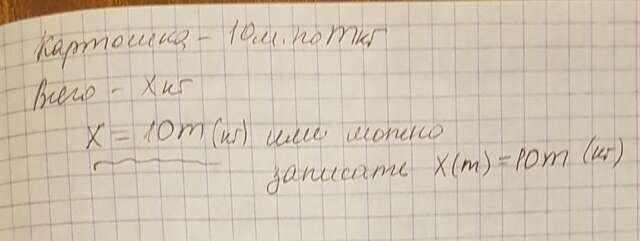 Картошка - 10м. по m кг
Всего - X кг
X = 10m (кг) или можно
записать X(m) = 10m (кг)